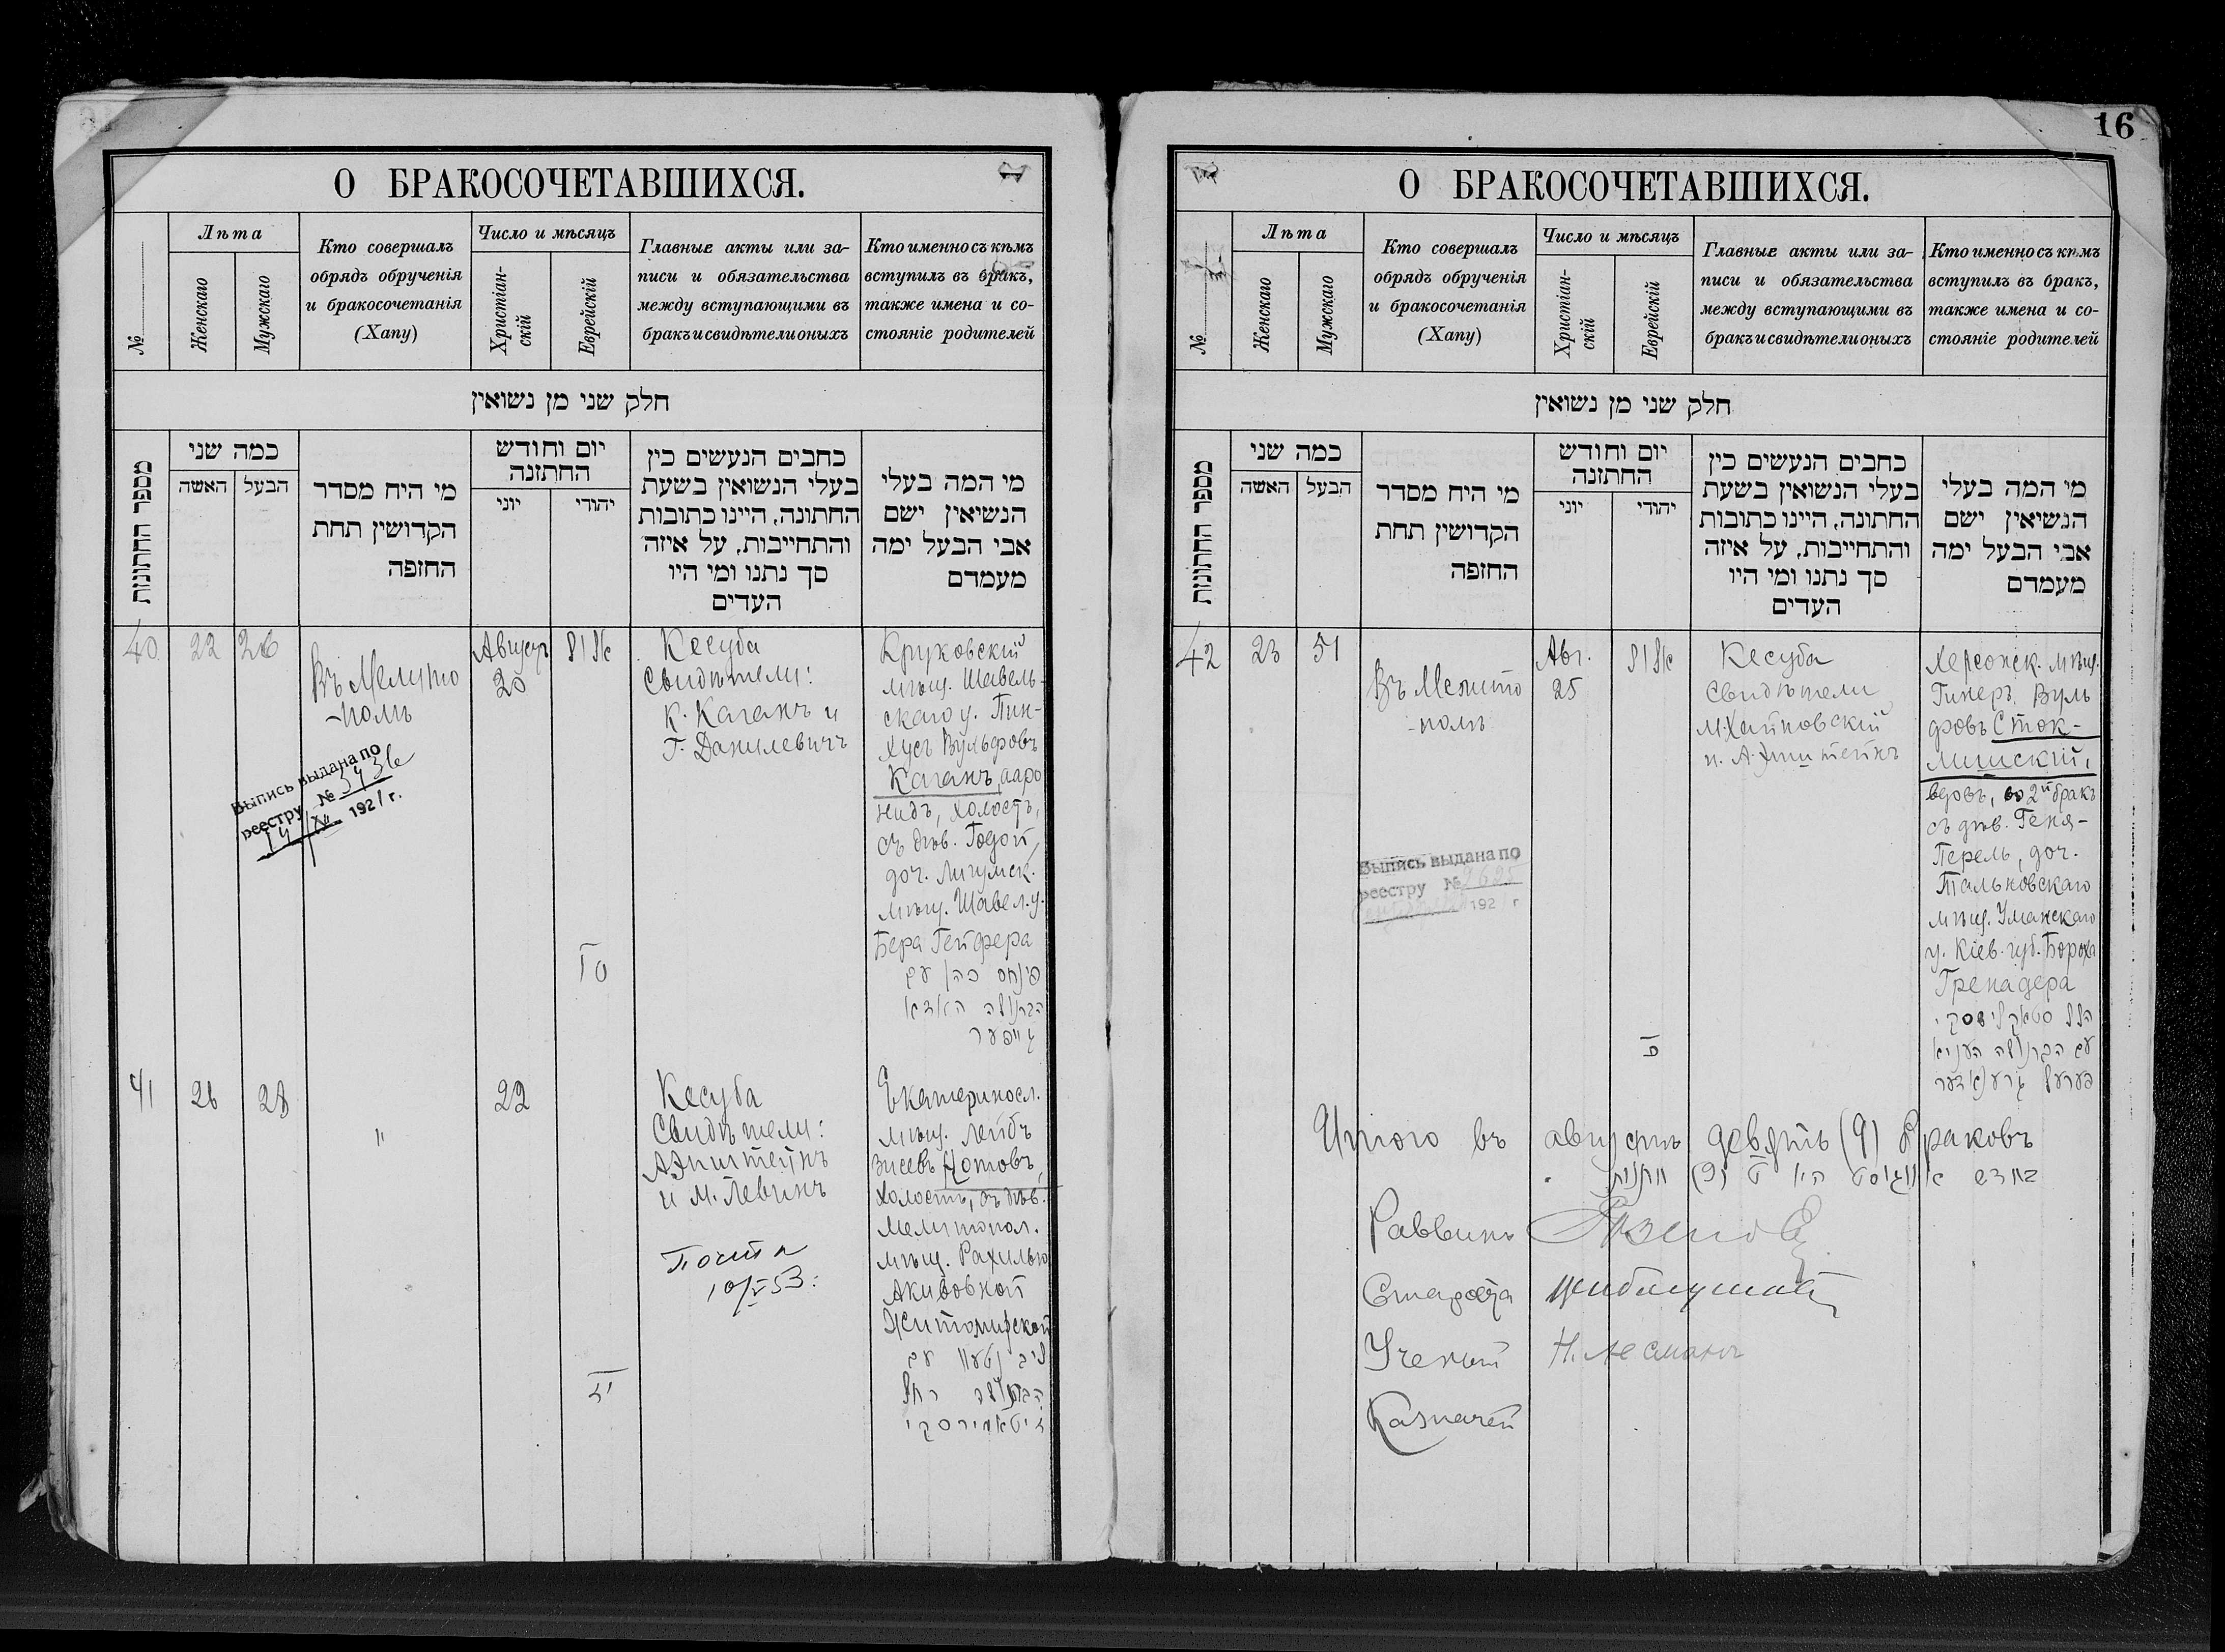 О БРАКОСОЧЕТАВШИХСЯ.
№
Лѣта
Женскаго
Мужскаго
Кто совершалъ
обрядъ обрученія
и бракосочетанія
(Хапу)
Число и мѣсяцъ
Христіан-
скій
Еврейскій
Главные акты или за-
писи и обязательства
между вступающими въ
бракъ и свидѣтели оныхъ
Кто именно съ кѣмъ
вступилъ въ бракъ,
также имена и со-
стояніе родителей
חלק שני מן נשואין
מספר החתונות
כמה שני
האשה
הבעל
מי היח מסדר
הקדושין תחת
החזפה
יום וחודש
החתזנה
יוני
יהודי
כחבים הנעשים כין
בעלי הנשואין בשעת
החתונה, היינו כתובות
והתחייבות, על איזה
סך נתנו ומי היו
העדים
מי המה בעלי
הנשיאין ישם
אבי הבעל ימה
מעמדם
40
22
26
Въ Мелито
-полѣ
Августъ
20
אלול
טו
Кесуба
Свидѣтели:
К. Каганъ и
Г. Данилевичъ
Круковскій
мѣщ. Шавель-
скаго у. Пин-
хусъ Вульфовъ
Каганъ, ааро
нидъ, холостъ,
съ дѣв. Годой,
доч. Лигумск.
мѣщ. Шавел. у.
Бера Гейфера
פינחס כהן עם
הבתולה האדא
גייפער
Выпись выдана по
реестру № 3436
14/XII 1921 г.
41
26
28
"
22
יז
Кесуба
Свидѣтели:
А Эпштейнъ
и М. Левинъ
10/V 53.
Екатеринosл.
мѣщ. Лейбъ
Зисевъ Нотовъ,
холостъ, съ дѣв.
мелитопол.
мѣщ. Рахилью
Акивовной
Житомирской
ליב נטעוו עם
הבתולה רחל
זיטאמירסקי
16
О БРАКОСОЧЕТАВШИХСЯ.
№
Лѣта
Женскаго
Мужскаго
Кто совершалъ
обрядъ обрученія
и бракосочетанія
(Хапу)
Число и мѣсяцъ
Христіан-
скій
Еврейскій
Главные акты или за-
писи и обязательства
между вступающими въ
бракъ и свидѣтели оныхъ
Кто именно съ кѣмъ
вступилъ въ бракъ,
также имена и со-
стояніе родителей
חלק שני מן נשואין
מספר החתונות
כמה שני
האשה
הבעל
מי היח מסדר
הקדושין תחת
החזפה
יום וחודש
החתזנה
יוני
יהודי
כחבים הנעשים כין
בעלי הנשואין בשעת
החתונה, היינו כתובות
והתחייבות, על איזה
סך נתנו ומי היו
העדים
מי המה בעלי
הנשיאין ישם
אבי הבעל ימה
מעמדם
42
23
51
Въ Мелито
-полѣ
Авг.
25
אלול
Кесуба
Свидѣтели
М. Хайновскій
и А. Эпштейнъ
Херсонск. мѣщ.
Гилеръ Вуль
фовъ Сток-
лишскій,
вдовъ, во 2й бракъ
съ дѣв. Геня-
Перель, доч.
Тальновскаго
мѣщ. Уманскаго
у. Кіев. губ. Бороха
Гренадера
הלל סטאקלישסקי
עם הבתולה העניא
פערעל גרענאדער
Выпись выдана по
реестру № 2625
192 г
Итого въ августѣ девять (9) браковъ
בחדש אווגוסט היו ט (9) חתונות
Раввинъ
Староста
Ученый Н. Лесманъ
Казначей